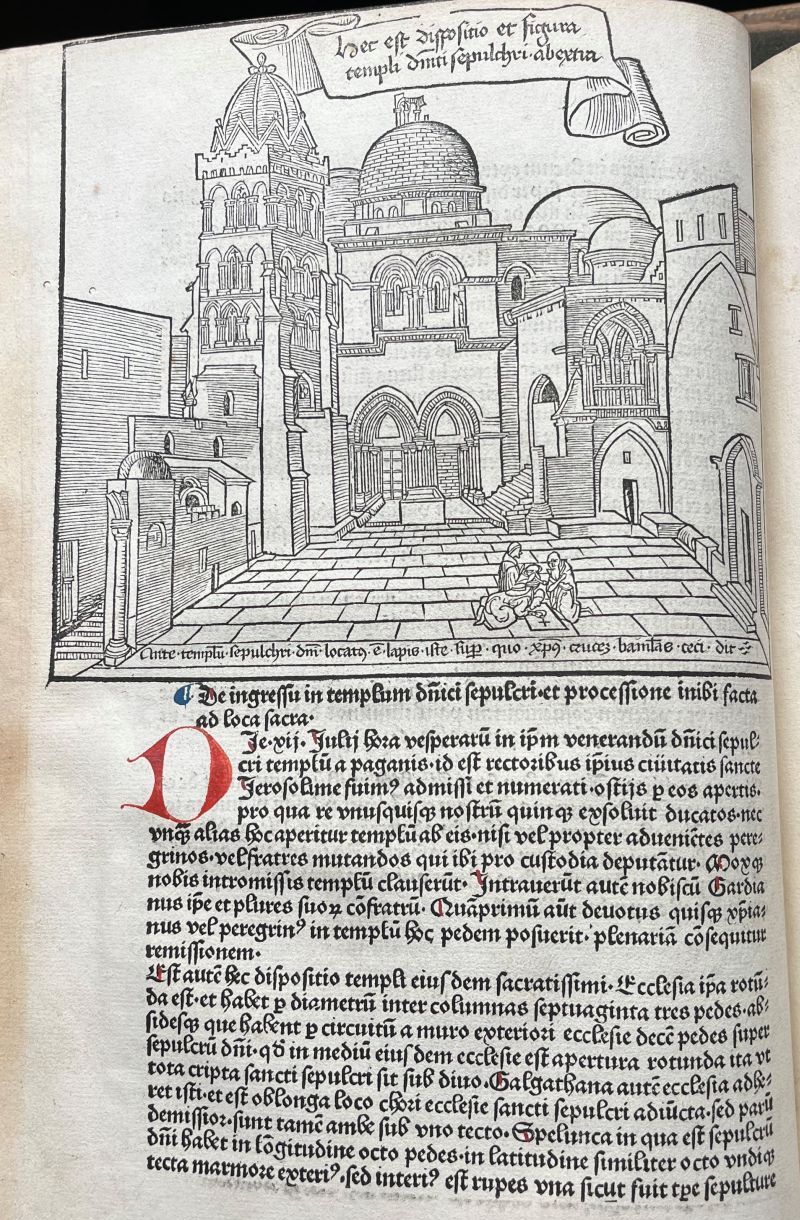 Hec est dispositio et figura
templi dn̄ici sepulchri abextra
Ante templū sepulchri dn̄i locatꝫ ē lapis iste sup̄ quo xp̄s crucez baiulās ceci dit
De ingressu in templum dn̄ici sepulcri·et processione inibi facta
ad loca sacra·
DJe·xij· Julij hora vesperarū in ip̄m venerandū dn̄ici sepul⸗
cri templū a paganis·id est rectoribus ip̄ius ciūitatis sancte
Jerosolime fuimꝰ admissi et numerati·ostijs ꝑ eos apertis·
pro qua re vnusquisqꝫ nostrū quinqꝫ exsoluit ducatos·nec
vnq̄ꝫ alias hoc aperitur templū ab eis·nisi vel propter adueniētes pere⸗
grinos·vel fratres mutandos qui ibi pro custodia deputātur· Moxqꝫ
nobis intromissis templū clauserūt· Intrauerūt autē nobiscū Gardia
nus ip̄e et plures suoꝝ cōfratrū· Quāprimū aūt deuotus quisqꝫ xp̄ia⸗
nus vel peregrinꝰ in templū hoc pedem posuerit· plenariā cōsequitur
remissionem·
Est autē hec dispositio templi eiusdem sacratissimi· Ecclesia ip̄a rotū⸗
da est·et habet ꝑ diametrū inter columnas septuaginta tres pedes·ab⸗
sidesqꝫ que habent ꝑ circuitū a muro exteriori ecclesie decē pedes super
sepulcrū dn̄i· qd̄ in mediū eiusdem ecclesie est apertura rotunda ita vt
tota cripta sancti sepulcri sit sub diuo· Galgathana autē ecclesia adhe⸗
ret isti·et est oblonga loco chori ecclesie sancti sepulcri adiūcta·sed parū
demissior·sunt tamē ambe sub vno tecto· Spelunca in qua est sepulcrū
dn̄i habet in lōgitudine octo pedes·in latitudine similiter octo vndiqꝫ
tecta marmore exteriꝰ·sed interiꝰ est rupes vna sicut fuit tꝑe sepulture